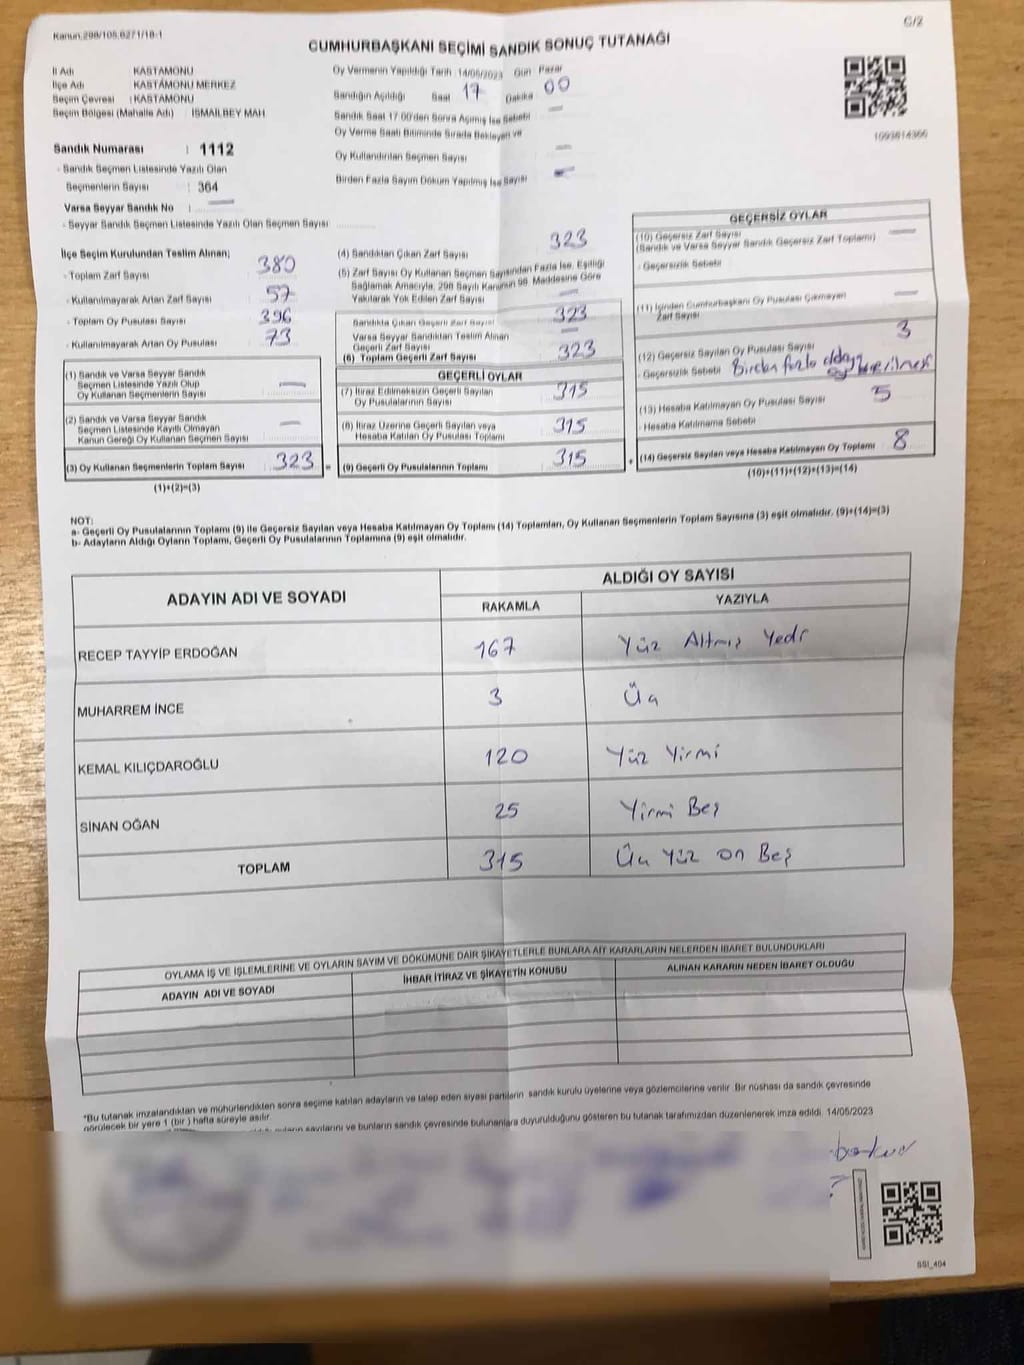 Kanun:298/105.6271/18-1
C/2
CUMHURBAŞKANI SEÇİMİ SANDIK SONUÇ TUTANAĞI
İl Adı KASTAMONU
İlçe Adı KASTAMONU MERKEZ
Seçim Çevresi : KASTAMONU
Seçim Bölgesi (Mahalle Adı) İSMAİLBEY MAH
Oy Vermenin Yapıldığı Tarih :14/05/2023 Gün : Pazar
Sandığın Açıldığı Saat 17 Dakika 00
Sandık Saat 17.00'den Sonra Açılmış İse Sebebi —
Oy Verme Saati Bitiminde Sırada Bekleyen ve
Oy Kullandırılan Seçmen Sayısı —
Birden Fazla Sayım Döküm Yapılmış İse Sayısı —
Sandık Numarası : 1112
- Sandık Seçmen Listesinde Yazılı Olan
Seçmenlerin Sayısı : 364
Varsa Seyyar Sandık No : —
- Seyyar Sandık Seçmen Listesinde Yazılı Olan Seçmen Sayısı
İlçe Seçim Kurulundan Teslim Alınan;
- Toplam Zarf Sayısı 380
- Kullanılmayarak Artan Zarf Sayısı 57
- Toplam Oy Pusulası Sayısı 396
- Kullanılmayarak Artan Oy Pusulası 73
(1) Sandık ve Varsa Seyyar Sandık
Seçmen Listesinde Yazılı Olup
Oy Kullanan Seçmenlerin Sayısı —
(2) Sandık ve Varsa Seyyar Sandık
Seçmen Listesinde Kayıtlı Olmayan
Kanun Gereği Oy Kullanan Seçmen Sayısı —
(3) Oy Kullanan Seçmenlerin Toplam Sayısı 323 =
(1)+(2)=(3)
(4) Sandıktan Çıkan Zarf Sayısı 323
(5) Zarf Sayısı Oy Kullanan Seçmen Sayısından Fazla İse, Eşitliği
Sağlamak Amacıyla, 298 Sayılı Kanunun 98. Maddesine Göre
Yakılarak Yok Edilen Zarf Sayısı —
Sandıkta Çıkan Geçerli Zarf Sayısı 323
Varsa Seyyar Sandıktan Teslim Alınan
Geçerli Zarf Sayısı —
(6) Toplam Geçerli Zarf Sayısı 323
GEÇERLİ OYLAR
(7) İtiraz Edilmeksizin Geçerli Sayılan
Oy Pusulalarının Sayısı 315
(8) İtiraz Üzerine Geçerli Sayılan veya
Hesaba Katılan Oy Pusulası Toplamı 315
(9) Geçerli Oy Pusulalarının Toplamı 315 +
GEÇERSİZ OYLAR
(10) Geçersiz Zarf Sayısı —
(Sandık ve Varsa Seyyar Sandık Geçersiz Zarf Toplamı)
- Geçersizlik Sebebi
(11) İçinden Cumhurbaşkanı Oy Pusulası Çıkmayan
Zarf Sayısı —
(12) Geçersiz Sayılan Oy Pusulası Sayısı 3
- Geçersizlik Sebebi Birden fazla aday oy verilmesi
(13) Hesaba Katılmayan Oy Pusulası Sayısı 5
- Hesaba Katılmama Sebebi
(14) Geçersiz Sayılan veya Hesaba Katılmayan Oy Toplamı 8
(10)+(11)+(12)+(13)=(14)
NOT:
a- Geçerli Oy Pusulalarının Toplamı (9) ile Geçersiz Sayılan veya Hesaba Katılmayan Oy Toplamı (14) Toplamları, Oy Kullanan Seçmenlerin Toplam Sayısına (3) eşit olmalıdır. (9)+(14)=(3)
b- Adayların Aldığı Oyların Toplamı, Geçerli Oy Pusulalarının Toplamına (9) eşit olmalıdır.
ADAYIN ADI VE SOYADI
ALDIĞI OY SAYISI
RAKAMLA YAZIYLA
RECEP TAYYİP ERDOĞAN 167 Yüz Altmış Yedi
MUHARREM İNCE 3 Üç
KEMAL KILIÇDAROĞLU 120 Yüz Yirmi
SİNAN OĞAN 25 Yirmi Beş
TOPLAM 315 Üç Yüz On Beş
OYLAMA İŞ VE İŞLEMLERİNE VE OYLARIN SAYIM VE DÖKÜMÜNE DAİR ŞİKAYETLERLE BUNLARA AİT KARARLARIN NELERDEN İBARET BULUNDUKLARI
ADAYIN ADI VE SOYADI İHBAR İTİRAZ VE ŞİKAYETİN KONUSU ALINAN KARARIN NEDEN İBARET OLDUĞU
*Bu tutanak imzalandıktan ve mühürlendikten sonra seçime katılan adayların ve talep eden siyasi partilerin sandık kurulu üyelerine veya gözlemcilerine verilir. Bir nüshası da sandık çevresinde
görülecek bir yere 1 (bir) hafta süreyle asılır.
sayılarını ve bunların sandık çevresinde bulunanlara duyurulduğunu gösteren bu tutanak tarafımızdan düzenlenerek imza edildi. 14/05/2023
SSI_404